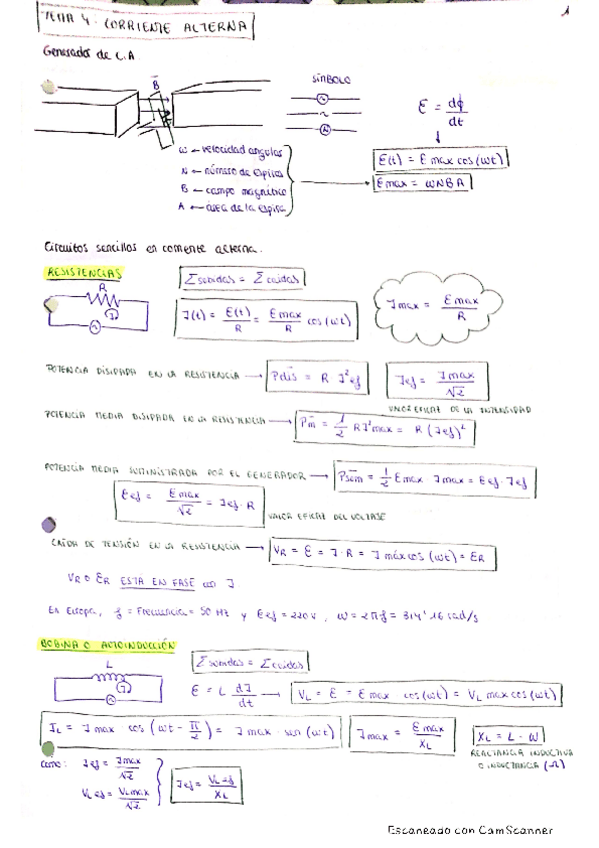 TEMA 4. CORRIENTE ALTERNA
1
Generador de C.A.
B⃗
SÍMBOLO
ε = dϕ/dt
ω ← velocidad angular
N ← número de espiras
B ← campo magnético
A ← área de la espira
ε(t) = ε max cos (ωt)
ε max = ωNBA
Circuitos sencillos en corriente alterna.
RESISTENCIAS
R
I
Σ subidas = Σ caídas
I(t) = ε(t)/R = ε max/R cos (ωt)
I max = ε max/R
POTENCIA DISIPADA EN LA RESISTENCIA → P dis = R I² ef
I ef = I max/√2
VALOR EFICAZ DE LA INTENSIDAD
POTENCIA MEDIA DISIPADA EN LA RESISTENCIA → Pm = 1/2 R I² max = R (I ef)²
POTENCIA MEDIA SUMINISTRADA POR EL GENERADOR → P sum = 1/2 ε max · I max = ε ef · I ef
ε ef = ε max/√2 = I ef · R
VALOR EFICAZ DEL VOLTAJE
CAÍDA DE TENSIÓN EN LA RESISTENCIA → VR = ε = I · R = I máx cos (ωt) = εR
VR o εR ESTÁ EN FASE con I
En Europa, f = Frecuencia = 50 Hz y ε ef = 220 V, ω = 2πf = 314'16 rad/s
BOBINA O AUTOINDUCCIÓN
L
I
Σ subidas = Σ caídas
ε = L dI/dt → VL = ε = ε max cos (ωt) = VL max cos (ωt)
IL = I max cos (ωt - π/2) = I max · sen (ωt)
I max = ε max/XL
XL = L · ω
REACTANCIA INDUCTIVA
O INDUCTANCIA (Ω)
Como: I ef = I max/√2
VL ef = VL max/√2
I ef = VL ef/XL
Escaneado con CamScanner